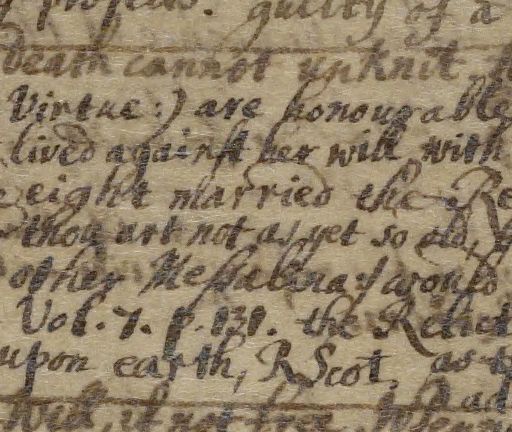 guilty of a
death cannot unknit,
Virtue:) are honourable
lived against her will with
eight married the Re
thou art not as yet so old,
other Messalina: / would
Vol. 7. p. 131. the Relict
upon earth, R Scot, as
ad
if not free,